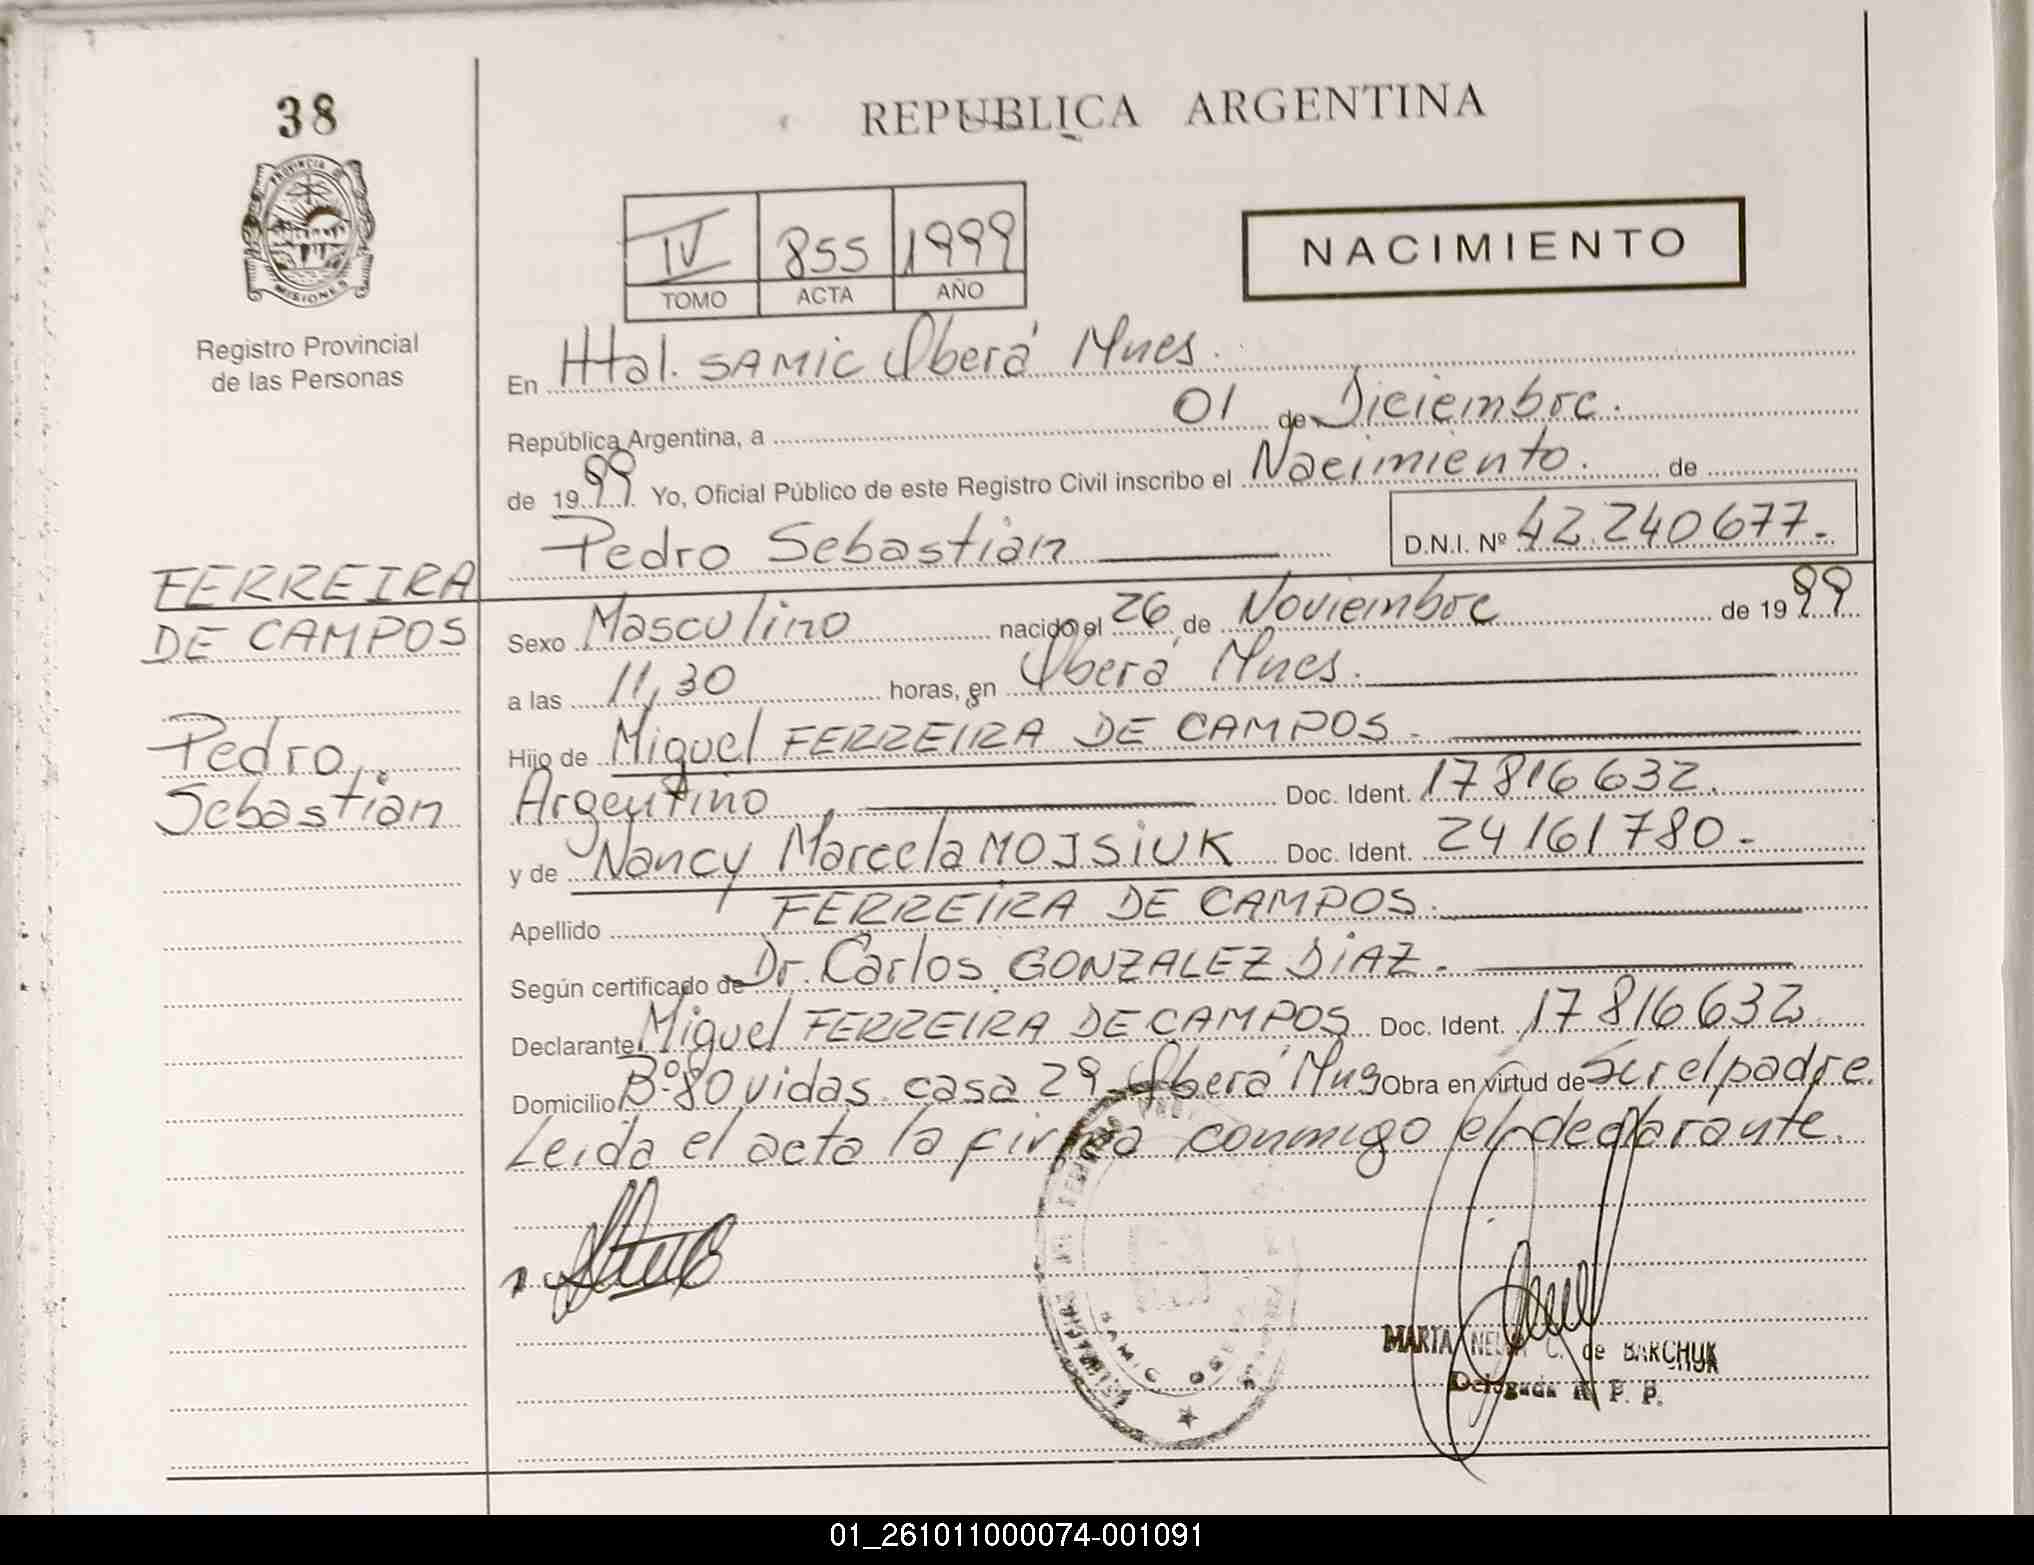 38
PROVINCIA DE
MISIONES
Registro Provincial
de las Personas
REPUBLICA ARGENTINA
IV 855 1999
TOMO ACTA AÑO
NACIMIENTO
En Htal. SAMIC Oberá Mnes.
República Argentina, a 01 de Diciembre.
de 1999. Yo, Oficial Público de este Registro Civil inscribo el Nacimiento. de
Pedro Sebastián D.N.I. Nº 42.240677.-
FERREIRA
DE CAMPOS
Pedro
Sebastián
Sexo Masculino nacido el 26 de Noviembre de 1999
a las 11,30 horas, en Oberá Mnes.
Hijo de Miguel FERREIRA DE CAMPOS.
Argentino Doc. Ident. 17816632.
y de Nancy Marcela MOJSiUK Doc. Ident. 24161780.-
Apellido FERREIRA DE CAMPOS.
Según certificado de Dr. Carlos GONZALEZ DiAZ.
Declarante Miguel FERREIRA DE CAMPOS Doc. Ident. 17816632
Domicilio Bº 80 vidas casa 29 Oberá Mns Obra en virtud de ser el padre.
Leida el acta la firma conmigo el declarante.
SAMIC OBERA
MARTA C. de BARCHUK
Delegada R. P. P.
01_261011000074-001091